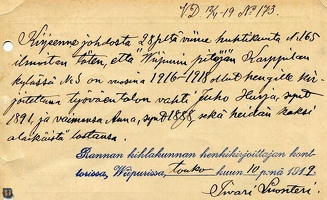 VD 7/4-19 No 173
Kirjeenne johdosta 28 p:ltä viime huhtikuuta N:o 165
ilmoitan täten, että Wiipurin pitäjän Karppilan
kylässä No 5 on vuosina 1916-1918 ollut hengille kir-
joitettuna työväentalon vahti Juho Hurja, synt
1891 ja vaimonsa Anna, synt 1888, sekä heidän kaksi
alaikäistä lastansa.
Rannan kihlakunnan henkikirjoittajan kont-
torissa, Wiipurissa, touko kuun 10 p:nä 1919.
Iivari